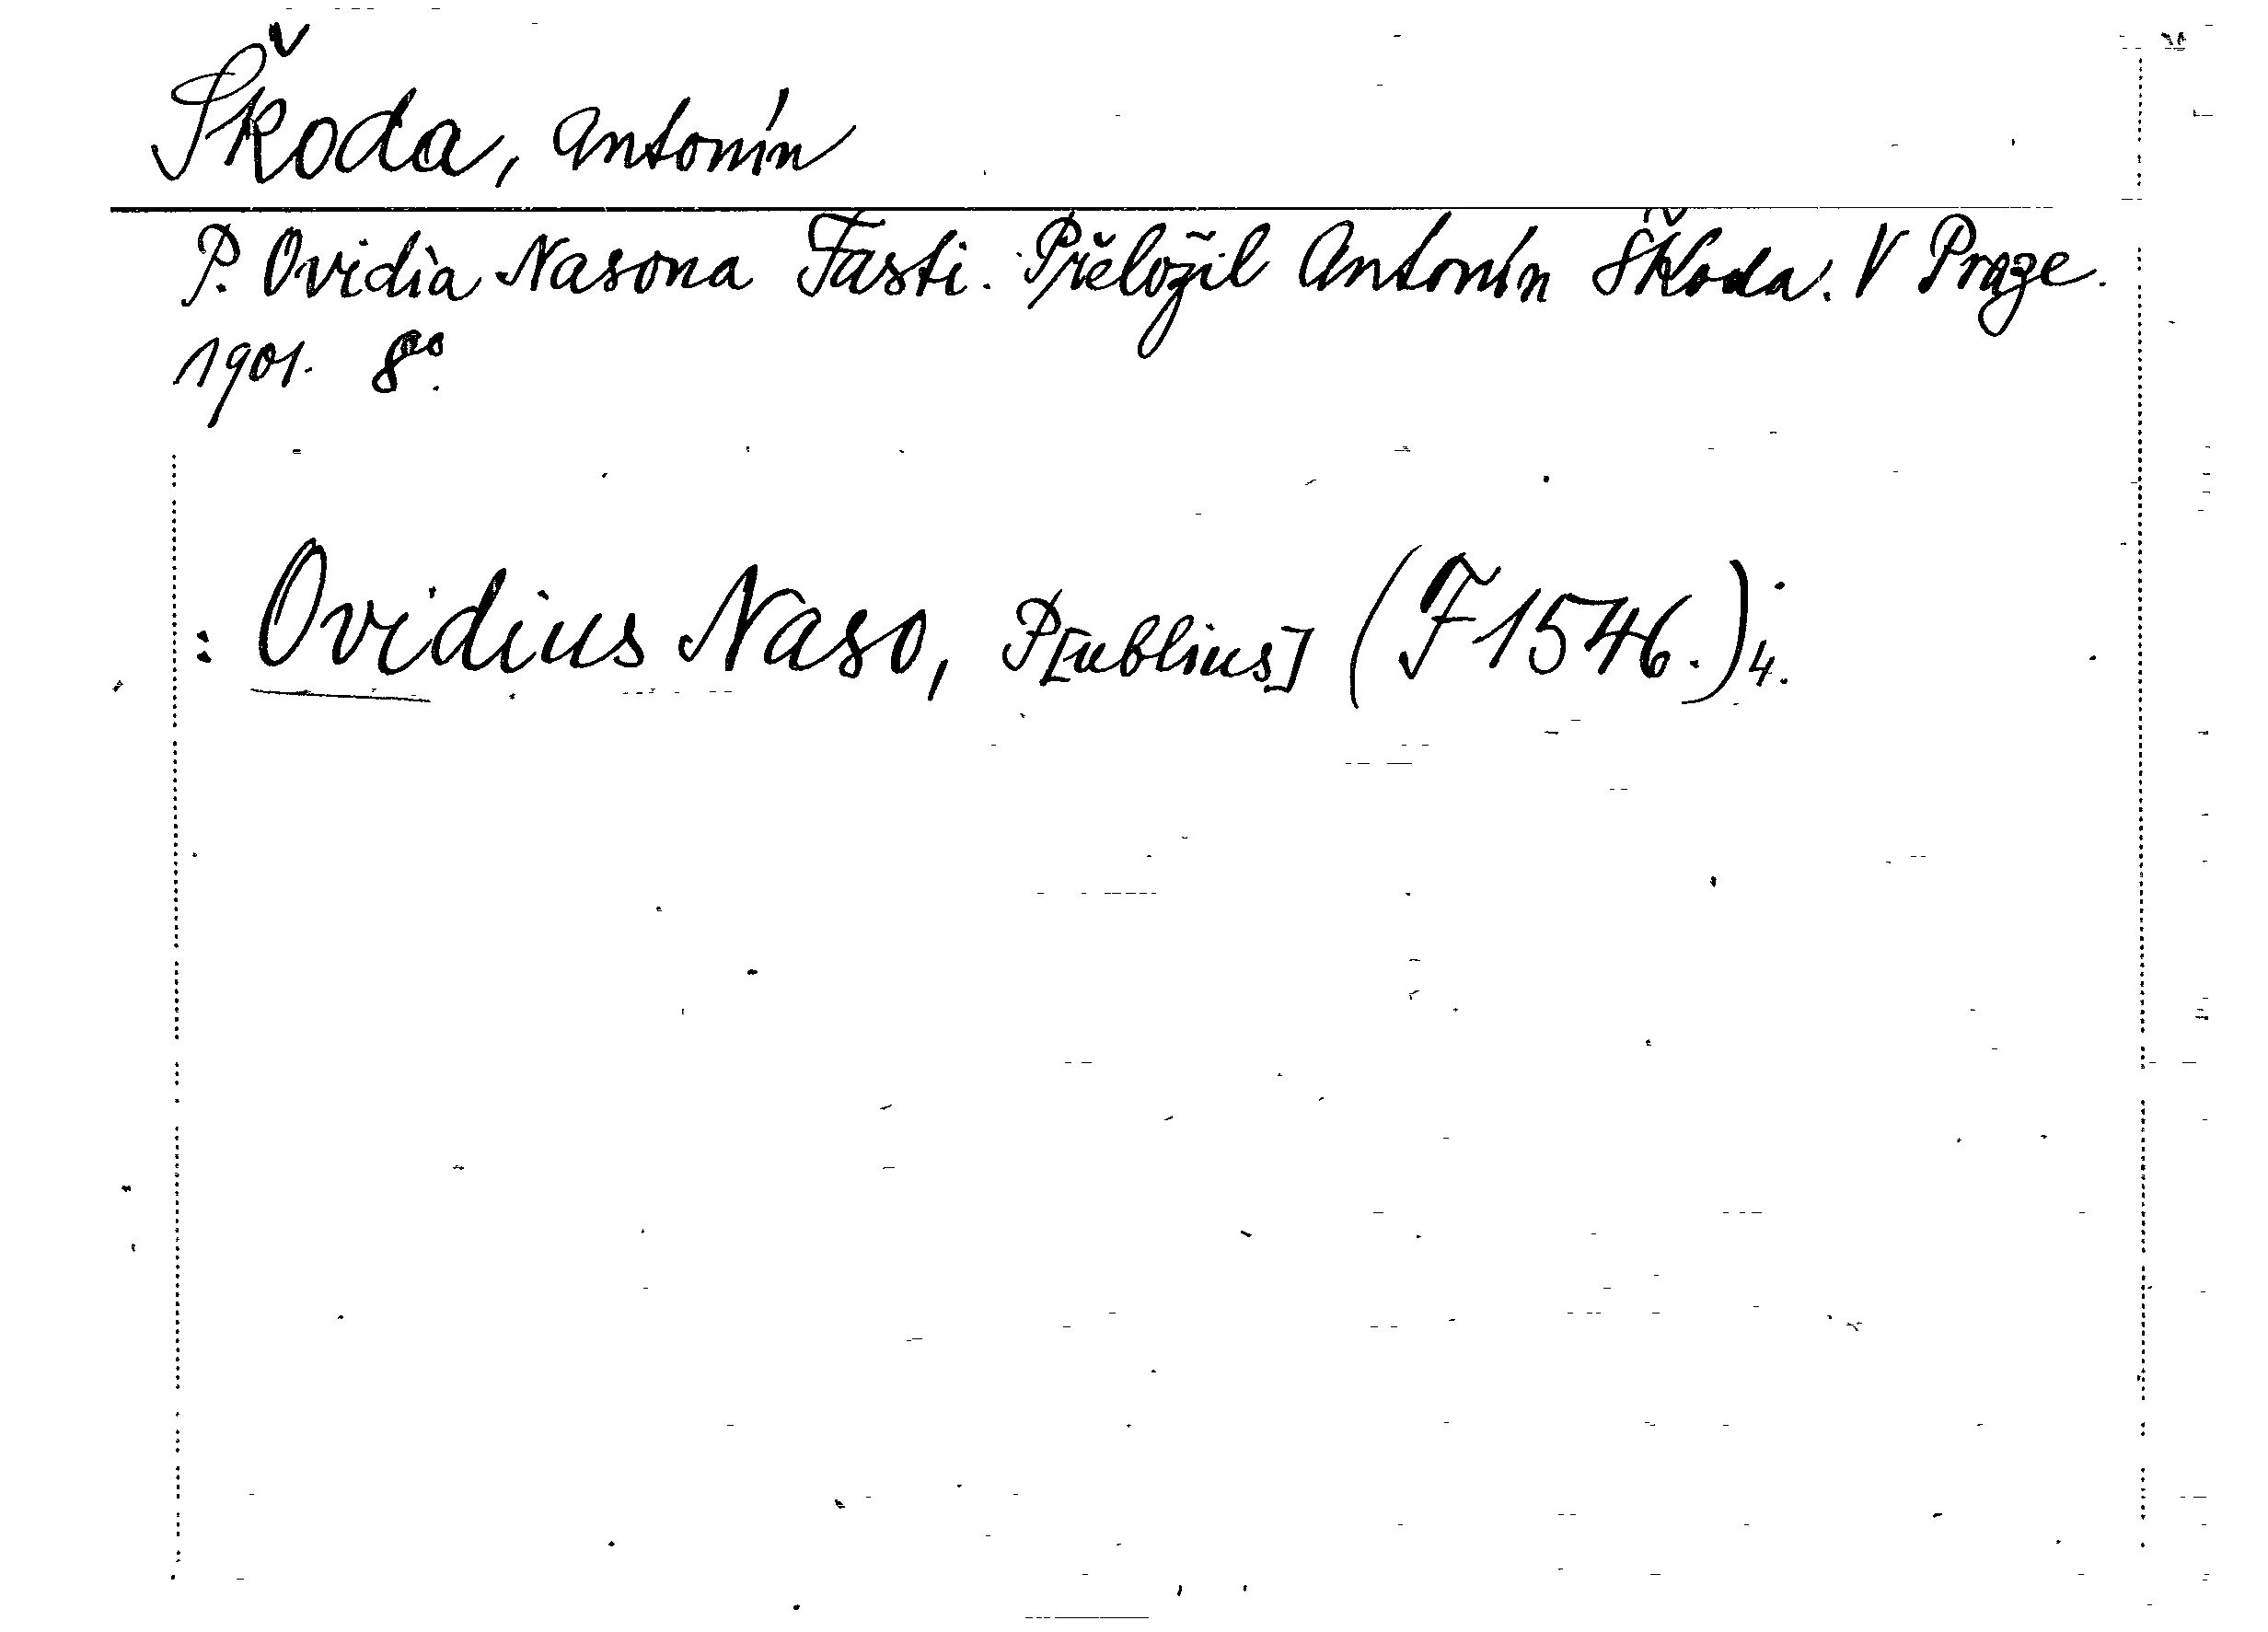 Škoda, Antonín
P. Ovidia Nasona Fasti. Přeložil Antonín Škoda. V Praze.
1901. 8°.
: Ovidius Naso, P[ublius] (F 1546.) 4.